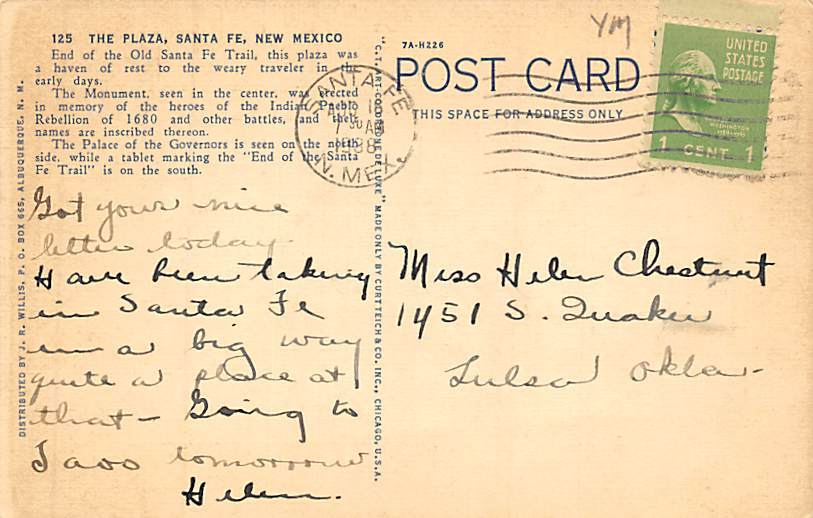 125 THE PLAZA, SANTA FE, NEW MEXICO
End of the Old Santa Fe Trail, this plaza was
a haven of rest to the weary traveler in the
early days.
The Monument, seen in the center, was erected
in memory of the heroes of the Indian Pueblo
Rebellion of 1680 and other battles, and their
names are inscribed thereon.
The Palace of the Governors is seen on the north
side, while a tablet marking the "End of the Santa
Fe Trail" is on the south.
Got your nice
letter today.
Have been taking
in Santa Fe
in a big way
quite a place at
that - Going to
Taos tomorrow
Helen.
DISTRIBUTED BY J. R. WILLIS, P. O. BOX 665, ALBUQUERQUE, N. M.
"C.T. ART-COLORTONE DE LUXE" MADE ONLY BY CURT TEICH & CO., INC., CHICAGO, U.S.A.
7A-H226
POST CARD
THIS SPACE FOR ADDRESS ONLY
SANTA FE
1938
N. MEX.
YM
UNITED
STATES
POSTAGE
WASHINGTON
1 CENT 1
Miss Helen Chestnut
1451 S. Quaker
Tulsa Okla-